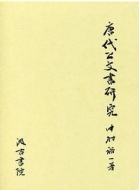 唐代公文書研究
中村裕一著
汲古書院